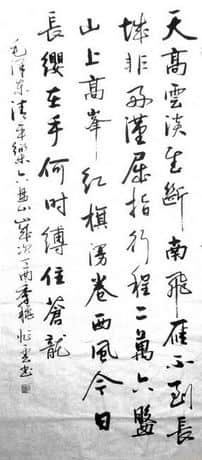 天高雲淡望斷南飛雁不到長
城非好漢屈指行程二萬六盤
山上高峯紅旗漫卷西風今日
長纓在手何時縛住蒼龍
毛澤東清平樂六盤山歲次丁酉